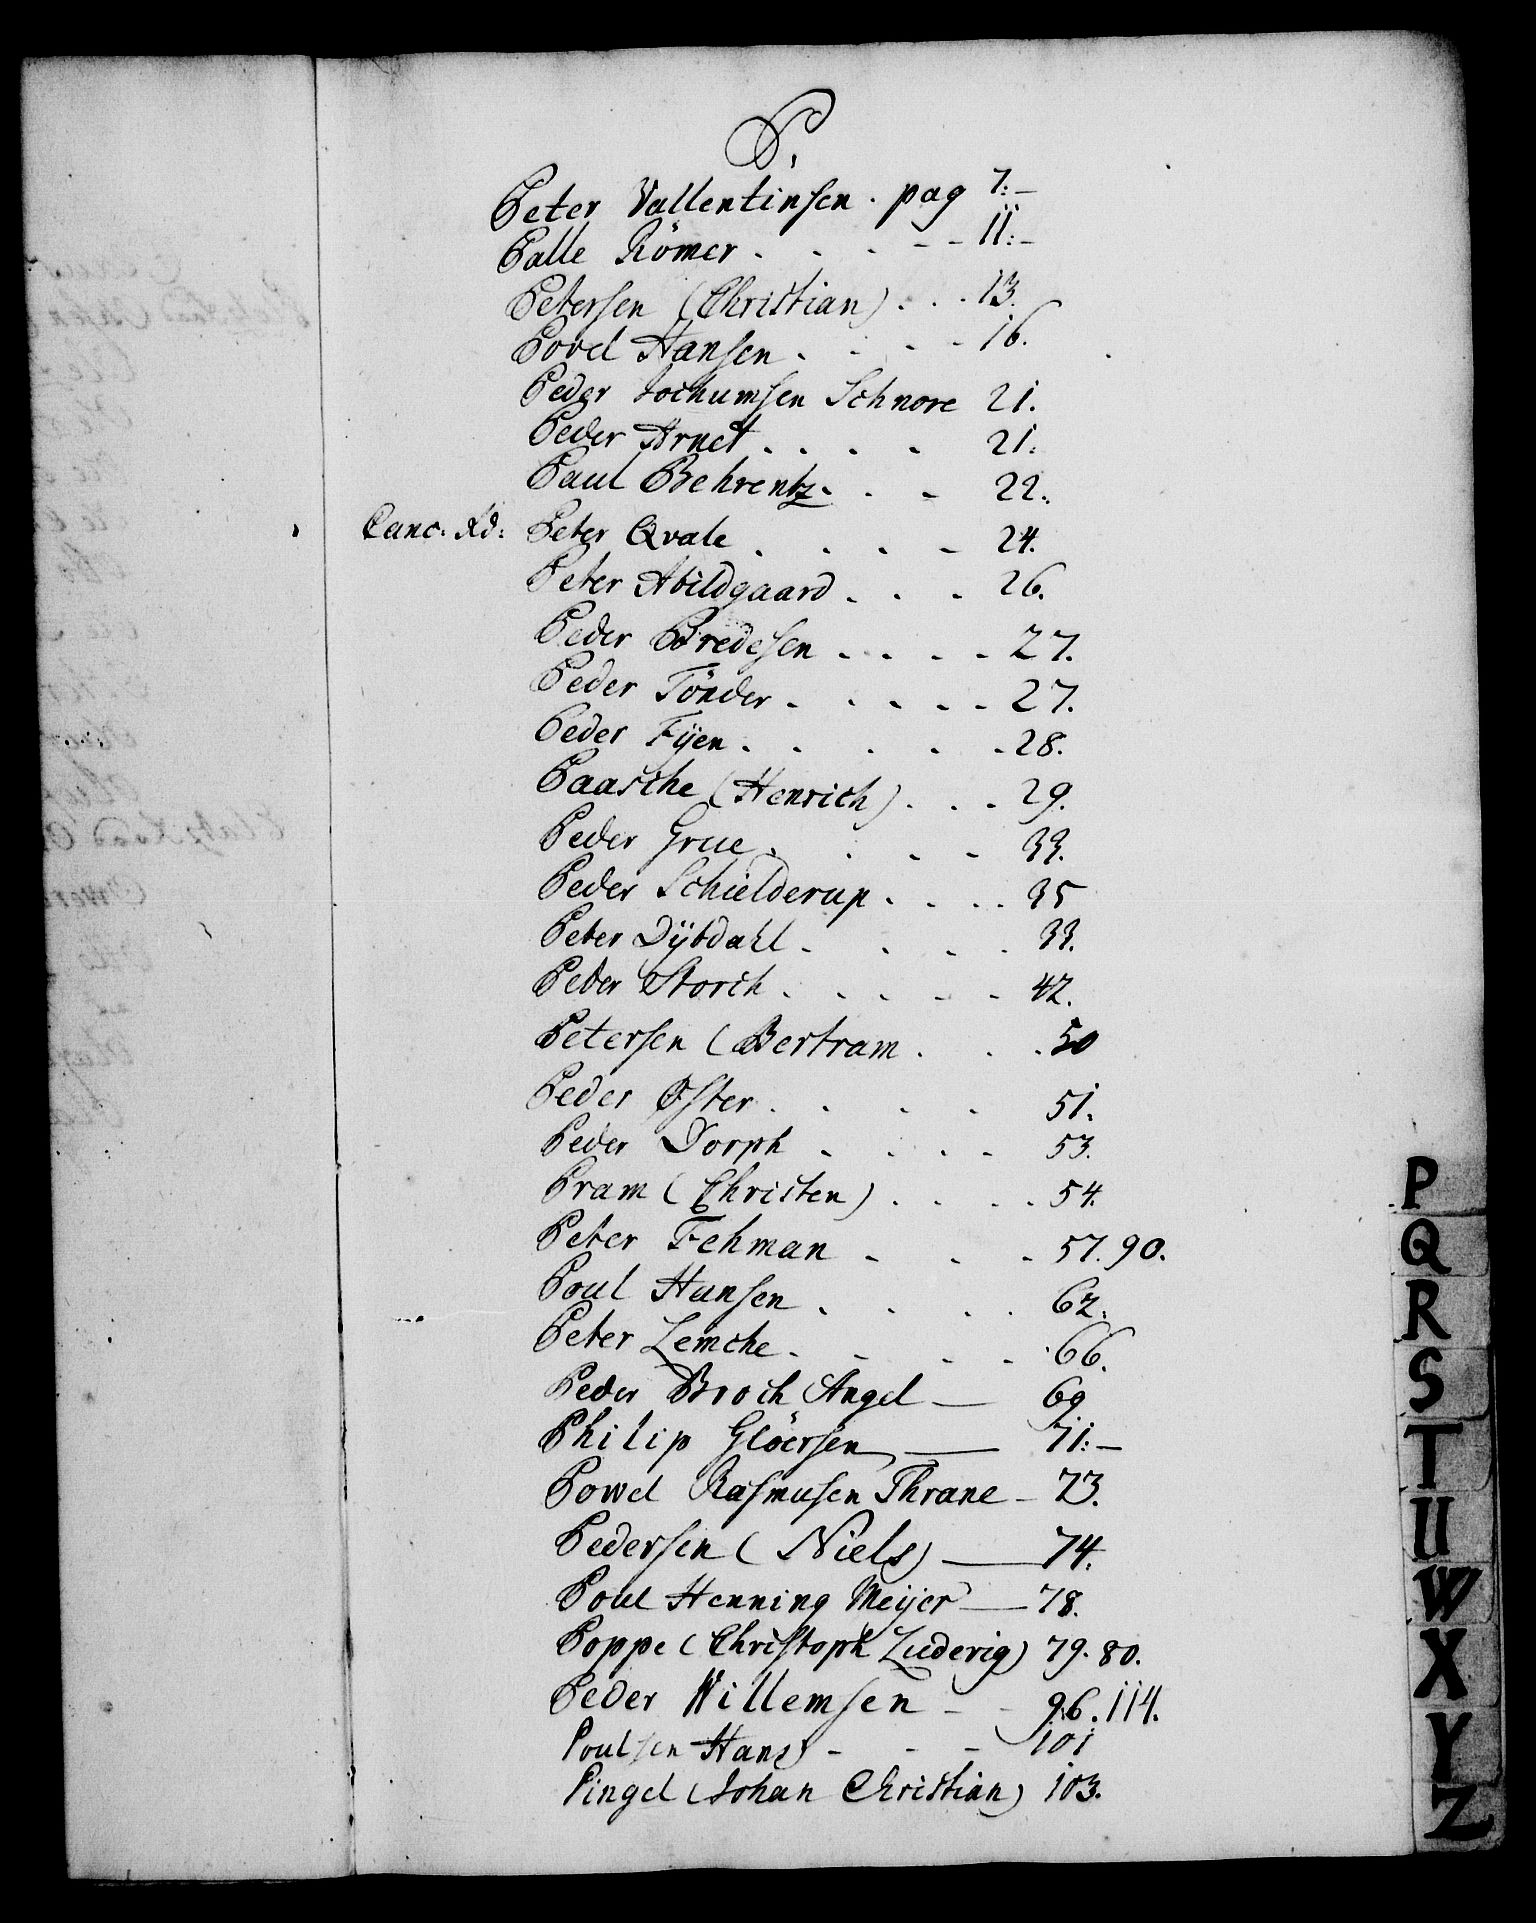 P.
Peter Vallentinsen . pag 7:-
Palle Römer . . . - - 11:-
Petersen (Christian) . . . 13.
Povel Hansen . . . . 16.
Peder Jochumsen Schnore 21.
Peder Arnet . . . . 21:
Paul Behrentz . . - 22:
Canc: Rd: Peter Qvale . . . - 24.
Peter Abildgaard . . . 26.
Peder Bredesen . . . . 27.
Peder Tönder . . . . . 27.
Peder Fÿen . . . . . 28.
Paasche (Henrich) . . . 29.
Peder Grue . . . - 33.
Peder Schielderup . . . . 35
Peter Dÿbdahl . . . . 33.
Peder Storch . . . . . 42.
Petersen (Bertram . . . 50
Peder Öster . . . . 51.
Peder Dorph . . . . 53.
Pram (Christen) . . . . 54.
Peter Fehman . . . 57. 90.
Poul Hansen . . . . 62:
Peter Lemche . . . . 66.
Peder Broch Angel — 69
Philip Glöersen — 71:-
Powel Rasmusen Thrane - 73.
Pedersen (Niels) — 74.
Poul Henning Meijer — 78.
Poppe (Christoph Luderig) 79. 80.
Peder Willemsen - - 96. 114.
Poulsen Hans) - - - 101
Pingel (Johan Christian) 103.
P
Q
R
S
T
U
W
X
Y
Z